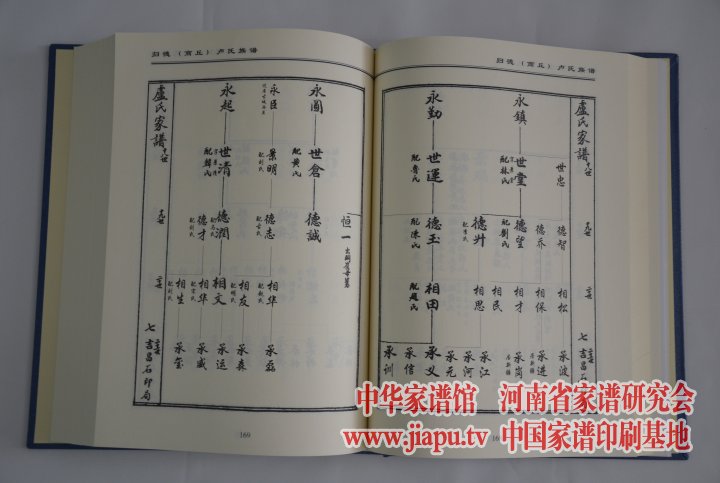 归德（商丘）卢氏族谱
盧氏家譜
永鎮
永勤
世忠
世堂
配林氏
世運
配魯氏
德智
德乔
德望
配劉氏
德升
配李氏
德玉
配陳氏
相松
相保
相才
相民
相思
相田
配趙氏
承波
承進
承崗
承江
承河
承元
承父
承信
承訓
吉昌石印局
归德（商丘）卢氏族谱
恒一
永圖
永臣
永起
世倉
配黄氏
景明
配劉氏
世清
配韓氏
德誠
德志
德潤
德才
相华
相友
相文
相华
相生
承磊
承森
承运
承威
承玺
盧氏家譜
七
吉昌石印局
169
中华家谱馆 河南省家谱研究会
www.jiapu.tv 中国家谱印刷基地